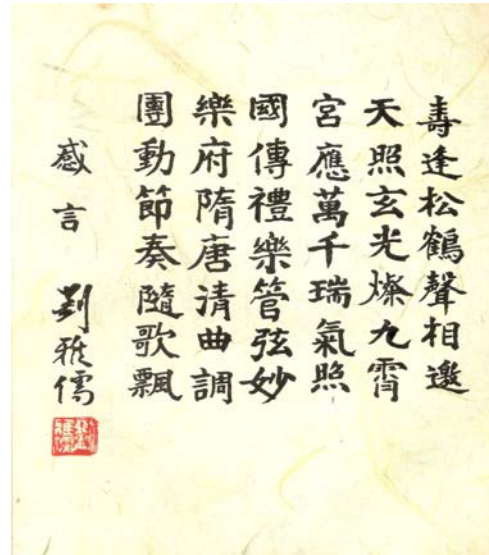 壽逢松鶴聲相邀
天照玄光燦九霄
宮應萬千瑞氣照
國傳禮樂管弦妙
樂府隋唐清曲調
團動節奏隨歌飄
感言 劉雅儒